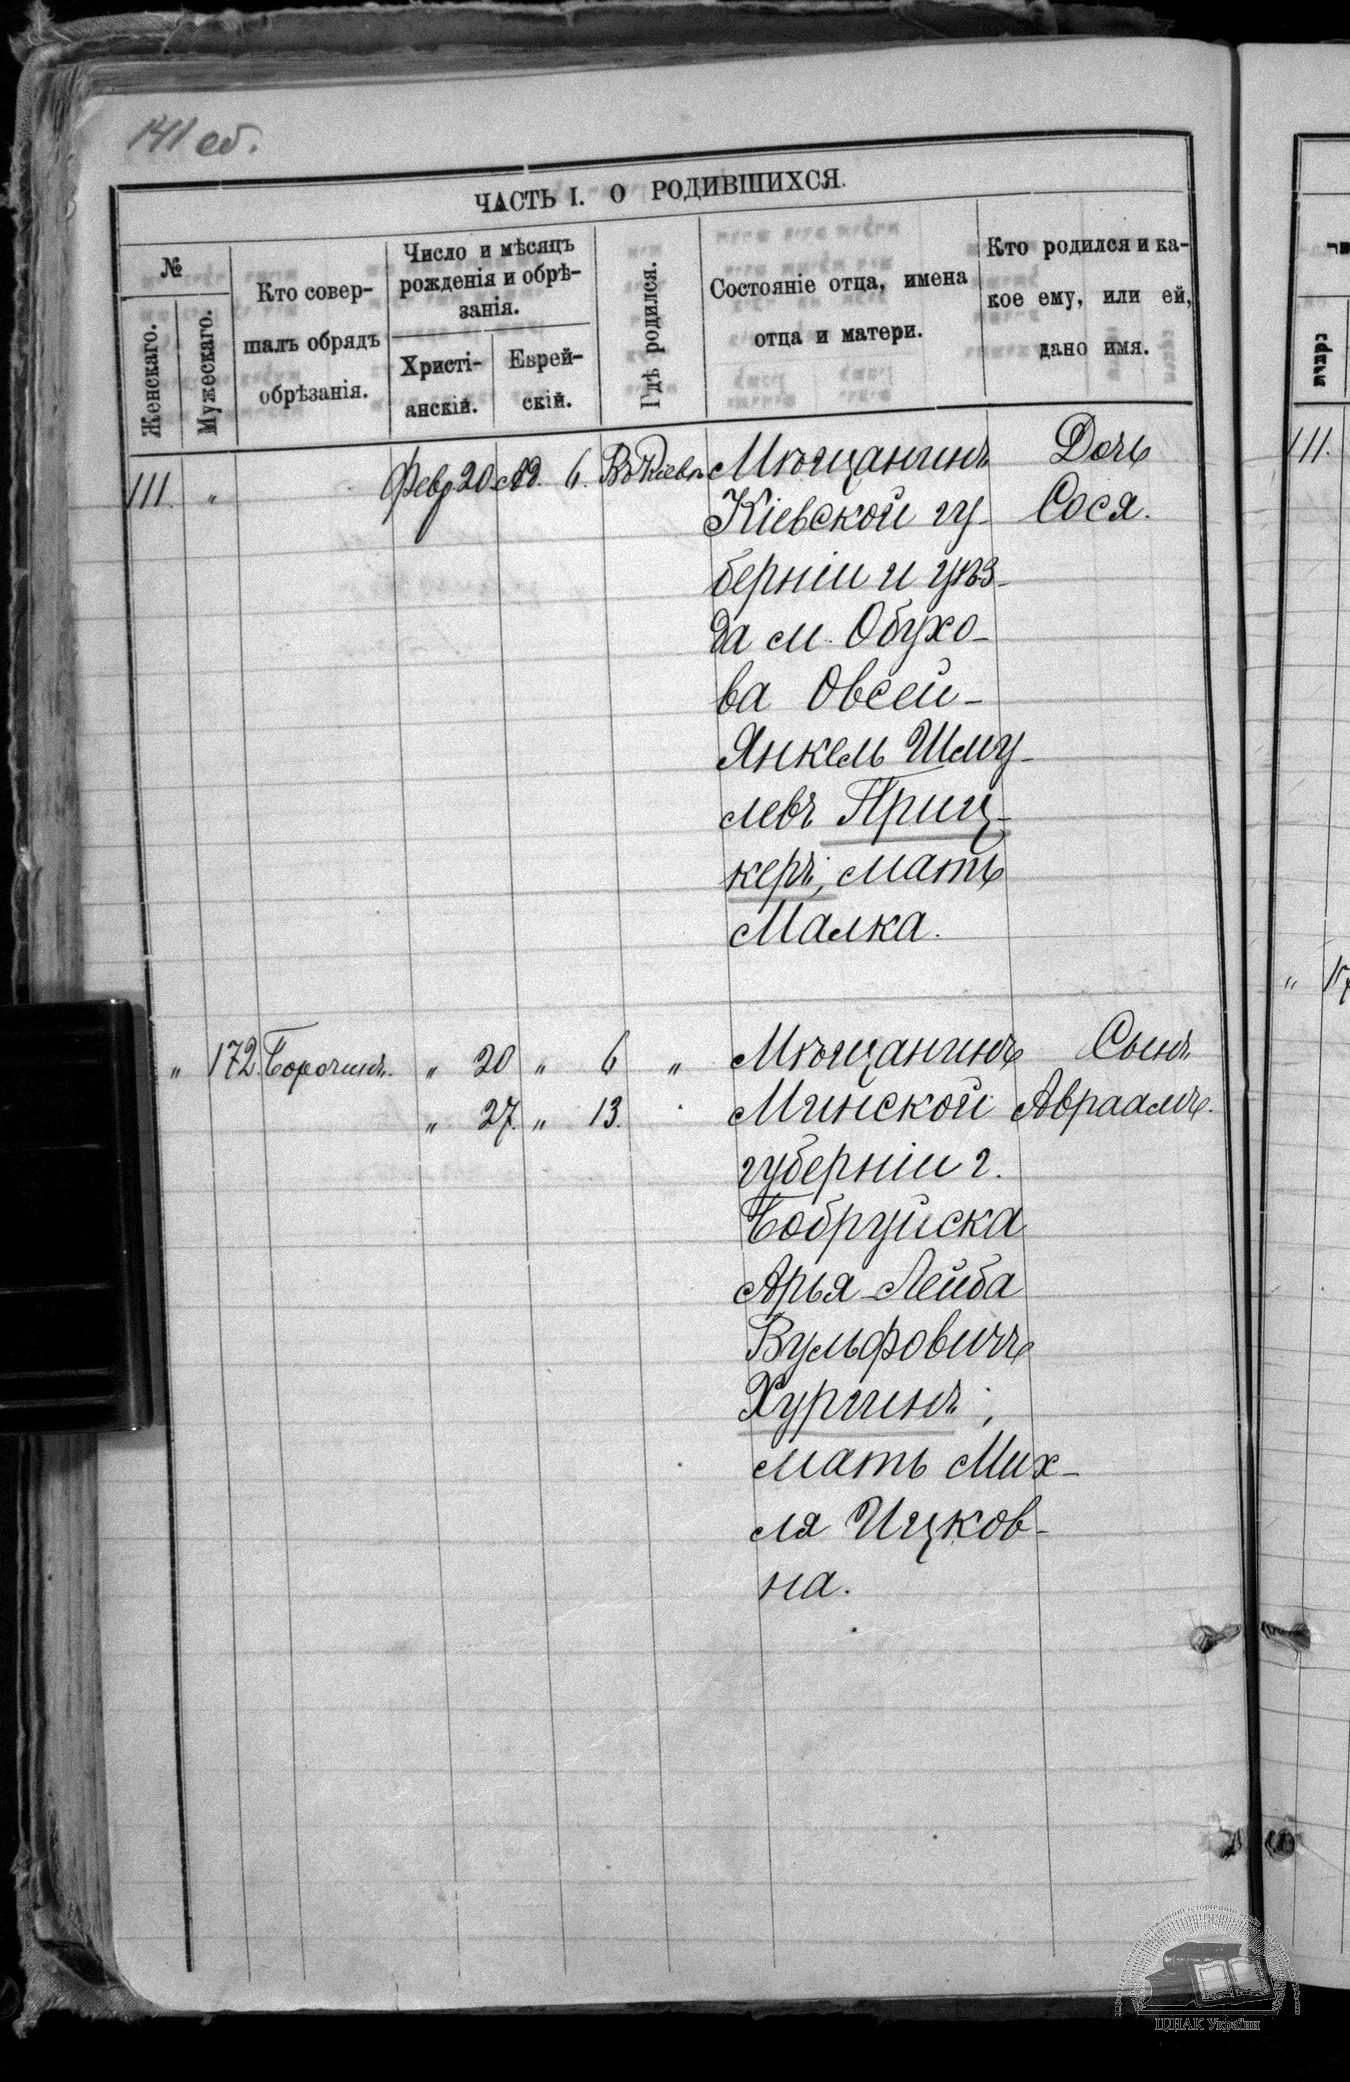 141 об.
ЧАСТЬ I. О РОДИВШИХСЯ.
№
Женскаго.
Мужескаго.
Кто совер-
шалъ обрядъ
обрѣзанія.
Число и мѣсяцъ
рожденія и обрѣ-
занія.
Христі-
анскій.
Еврей-
скій.
Гдѣ родился.
Состояніе отца, имена
отца и матери.
Кто родился и ка-
кое ему, или ей,
дано имя.
111. „ Февр 20. 6. Въ Кіевѣ Мѣщанинъ Дочь
Кіевской гу- Сося.
берніи и уѣз-
да м. Обухо-
ва Овсей-
Янкель Шму-
левъ Приц-
керъ, мать
Малка.
„ 172. Борочинъ. „ 20 „ 6 „ Мѣщанинъ Сынъ
„ 27. „ 13. Минской Авраамъ.
губерніи г.
Бобруйска
Арья-Лейба
Вульфовичъ
Хургинъ,
мать Мих-
ля Ицков-
на.
111.
נקבות
„ 17
ЦДІАК України